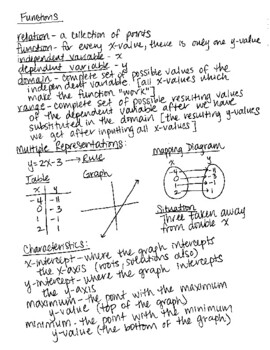 Functions
relation - a collection of points
function - for every x-value, there is only one y-value
independent variable - x
dependent variable - y
domain - complete set of possible values of the
independent variable [all x-values which
make the function "work"]
range - complete set of possible resulting values
of the dependent variable after we have
substituted in the domain [the resulting y-values
we get after inputting all x-values]
Multiple Representations:
y = 2x - 3 → Rule
Mapping Diagram
Table
Graph
x y
x y
-4 -11
0 -3
1 -1
2 1
-4 -11
0 -3
1 -1
2 1
Situation
Three taken away
from double x
Characteristics:
x-intercept - where the graph intercepts
the x-axis (roots, solutions also)
y-intercept - where the graph intercepts
the y-axis
maximum - the point with the maximum
y-value (top of the graph)
minimum - the point with the minimum
y-value (the bottom of the graph)